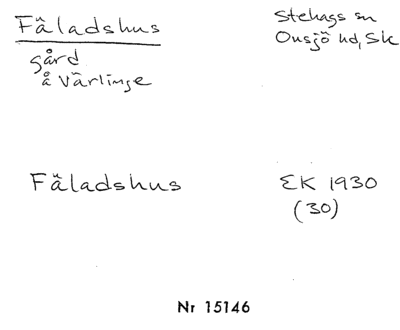 Fäladshus
Stehags sn
Onsjö hd, Sk
gård
å Värlinge
Fäladshus
EK 1930
(30)
Nr 15146